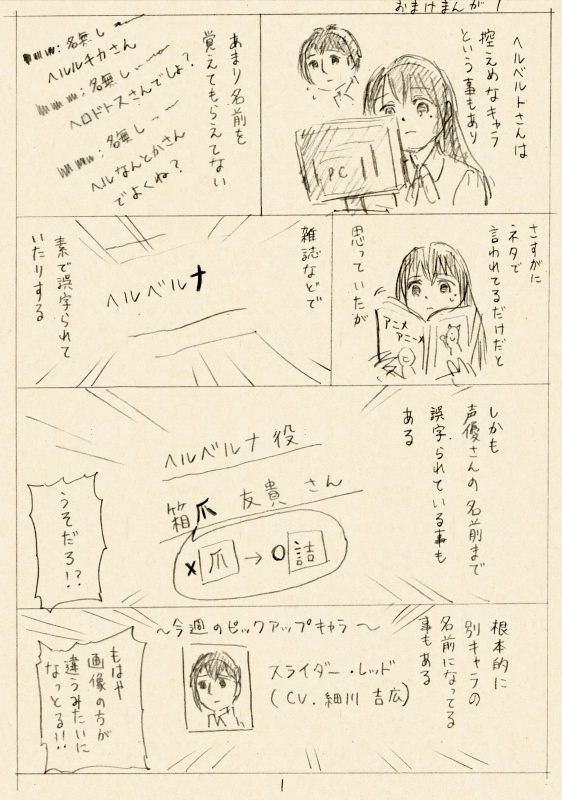 おまけまんが 1
ヘルベルトさんは
控えめなキャラ
という事もあり
PC
あまり名前を
覚えてもらえてない
名無し
ヘルルキカさん
名無し
ヘロドトスさんでしょ?
名無し
ヘルなんとかさん
でよくね?
さすがに
ネタで
言われてるだけだと
思っていたが
アニメ
アニーメ
雑誌などで
ヘルベルナ
素で誤字られて
いたりする
しかも
声優さんの名前まで
誤字られている事も
ある
ヘルベルナ役
箱爪 友貴 さん
×爪→○詰
うそだろ!?
根本的に
別キャラの
名前になってる
事もある
~今週のピックアップキャラ~
スライダー・レッド
(CV.細川 吉広)
もはや
画像の方が
違うみたいに
なっとる!!
1